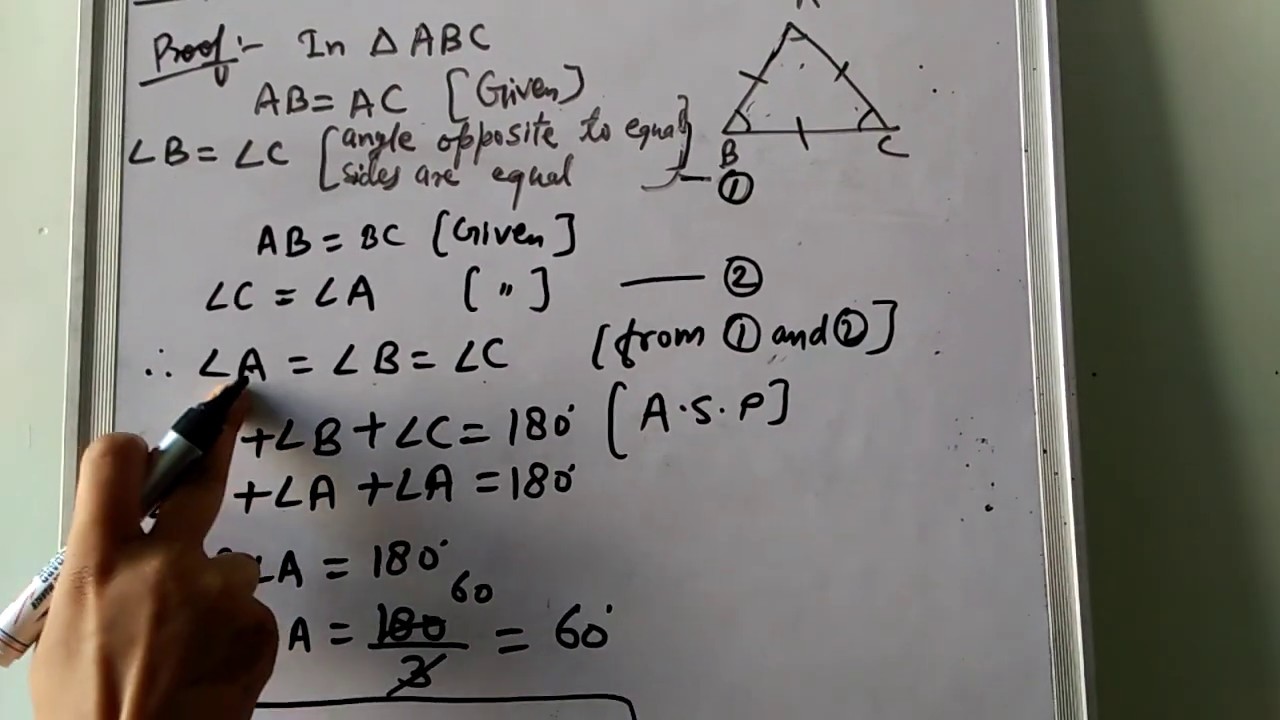 Proof:- In △ABC
AB = AC [Given]
∠B = ∠C [angle opposite to equal
sides are equal] — ①
AB = BC [Given]
∠C = ∠A [〃] — ②
∴ ∠A = ∠B = ∠C [from ① and ②]
+∠B + ∠C = 180° [A.S.P]
+∠A + ∠A = 180°
∠A = 180°
A = 180/3 60 = 60°
B
C